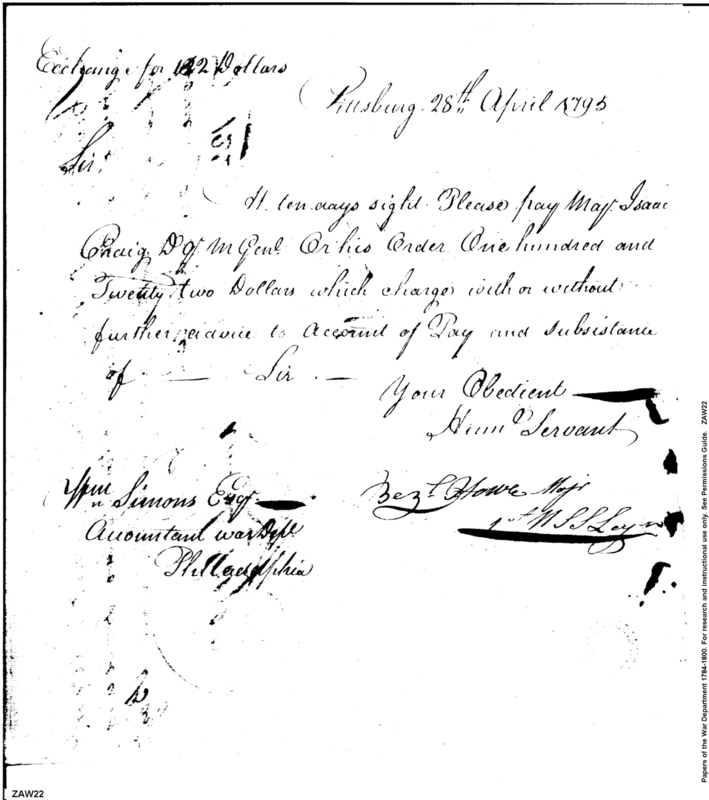 Exchange for 122 Dollars
Pittsburg 28th April 1795
Sir,
At ten days sight Please pay Majr. Isaac
Craig D Q M Genl. Or his Order One hundred and
Twenty two Dollars which charge with or without
further advice to Account of Pay and Subsistance
of — Sir —
Your Obedient
Humb Servant
Wm Simons Esqr
Accountant war Dept.
Philladelphia
Bezl. Howe Majr
1st U S S Legn
Papers of the War Department 1784-1800. For research and instructional use only. See Permissions Guide. ZAW22
ZAW22